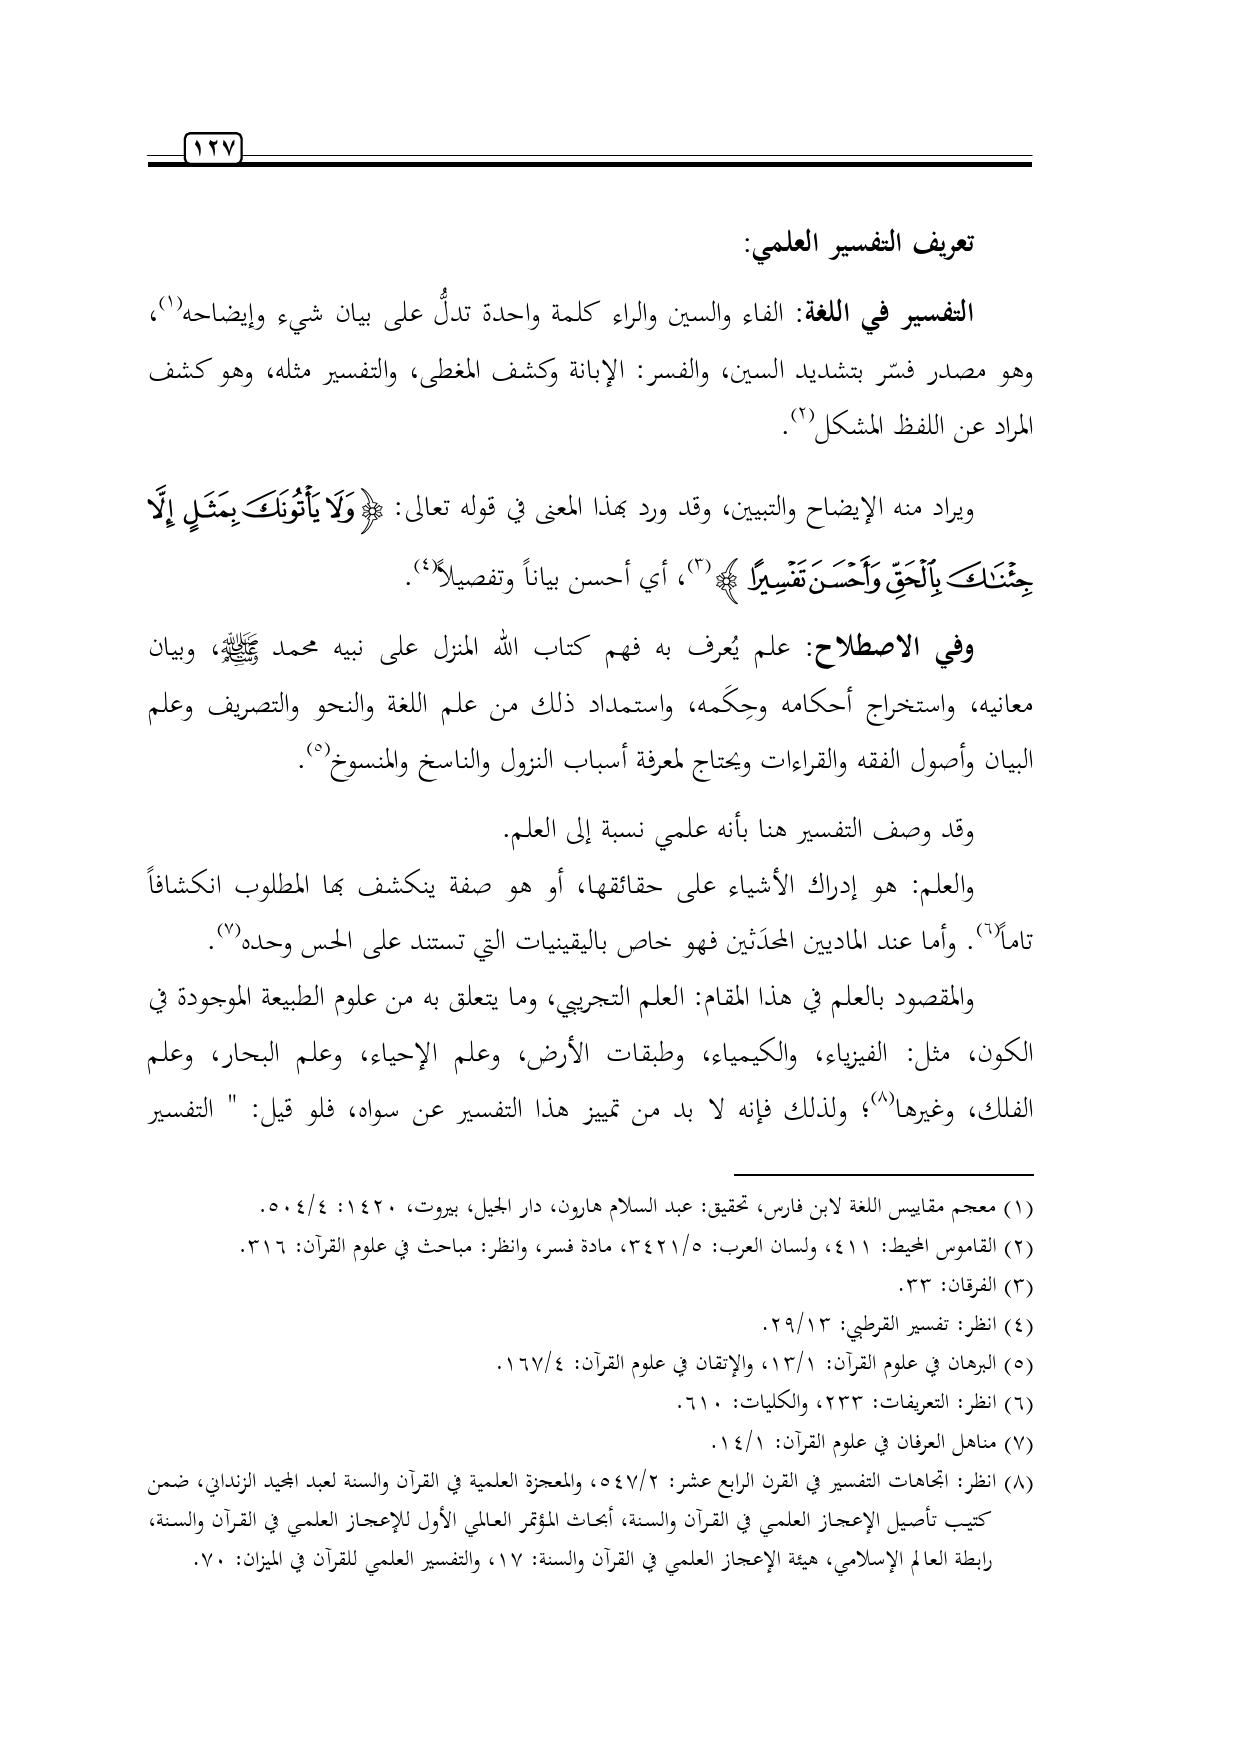 ١٢٧
تعريف التفسير العلمي:
التفسير في اللغة: الفاء والسين والراء كلمة واحدة تدلُّ على بيان شيء وإيضاحه(١)،
وهو مصدر فسّر بتشديد السين، والفسر: الإبانة وكشف المغطى، والتفسير مثله، وهو كشف
المراد عن اللفظ المشكل(٢).
ويراد منه الإيضاح والتبيين، وقد ورد بهذا المعنى في قوله تعالى: ﴿وَلَا يَأْتُونَكَ بِمَثَلٍ إِلَّا
جِئْنَٰكَ بِٱلْحَقِّ وَأَحْسَنَ تَفْسِيرًا﴾(٣)، أي أحسن بياناً وتفصيلاً(٤).
وفي الاصطلاح: علم يُعرف به فهم كتاب الله المنزل على نبيه محمد ﷺ، وبيان
معانيه، واستخراج أحكامه وحِكَمه، واستمداد ذلك من علم اللغة والنحو والتصريف وعلم
البيان وأصول الفقه والقراءات ويحتاج لمعرفة أسباب النزول والناسخ والمنسوخ(٥).
وقد وصف التفسير هنا بأنه علمي نسبة إلى العلم.
والعلم: هو إدراك الأشياء على حقائقها، أو هو صفة ينكشف بها المطلوب انكشافاً
تاماً(٦). وأما عند الماديين المحدَثين فهو خاص باليقينيات التي تستند على الحس وحده(٧).
والمقصود بالعلم في هذا المقام: العلم التجريبي، وما يتعلق به من علوم الطبيعة الموجودة في
الكون، مثل: الفيزياء، والكيمياء، وطبقات الأرض، وعلم الإحياء، وعلم البحار، وعلم
الفلك، وغيرها(٨)؛ ولذلك فإنه لا بد من تمييز هذا التفسير عن سواه، فلو قيل: " التفسير
(١) معجم مقاييس اللغة لابن فارس، تحقيق: عبد السلام هارون، دار الجيل، بيروت، ١٤٢٠: ٥٠٤/٤.
(٢) القاموس المحيط: ٤١١، ولسان العرب: ٣٤٢١/٥، مادة فسر، وانظر: مباحث في علوم القرآن: ٣١٦.
(٣) الفرقان: ٣٣.
(٤) انظر: تفسير القرطبي: ٢٩/١٣.
(٥) البرهان في علوم القرآن: ١٣/١، والإتقان في علوم القرآن: ١٦٧/٤.
(٦) انظر: التعريفات: ٢٣٣، والكليات: ٦١٠.
(٧) مناهل العرفان في علوم القرآن: ١٤/١.
(٨) انظر: اتجاهات التفسير في القرن الرابع عشر: ٥٤٧/٢، والمعجزة العلمية في القرآن والسنة لعبد المجيد الزنداني، ضمن
كتيب تأصيل الإعجاز العلمي في القرآن والسنة، أبحاث المؤتمر العالمي الأول للإعجاز العلمي في القرآن والسنة،
رابطة العالم الإسلامي، هيئة الإعجاز العلمي في القرآن والسنة: ١٧، والتفسير العلمي للقرآن في الميزان: ٧٠.